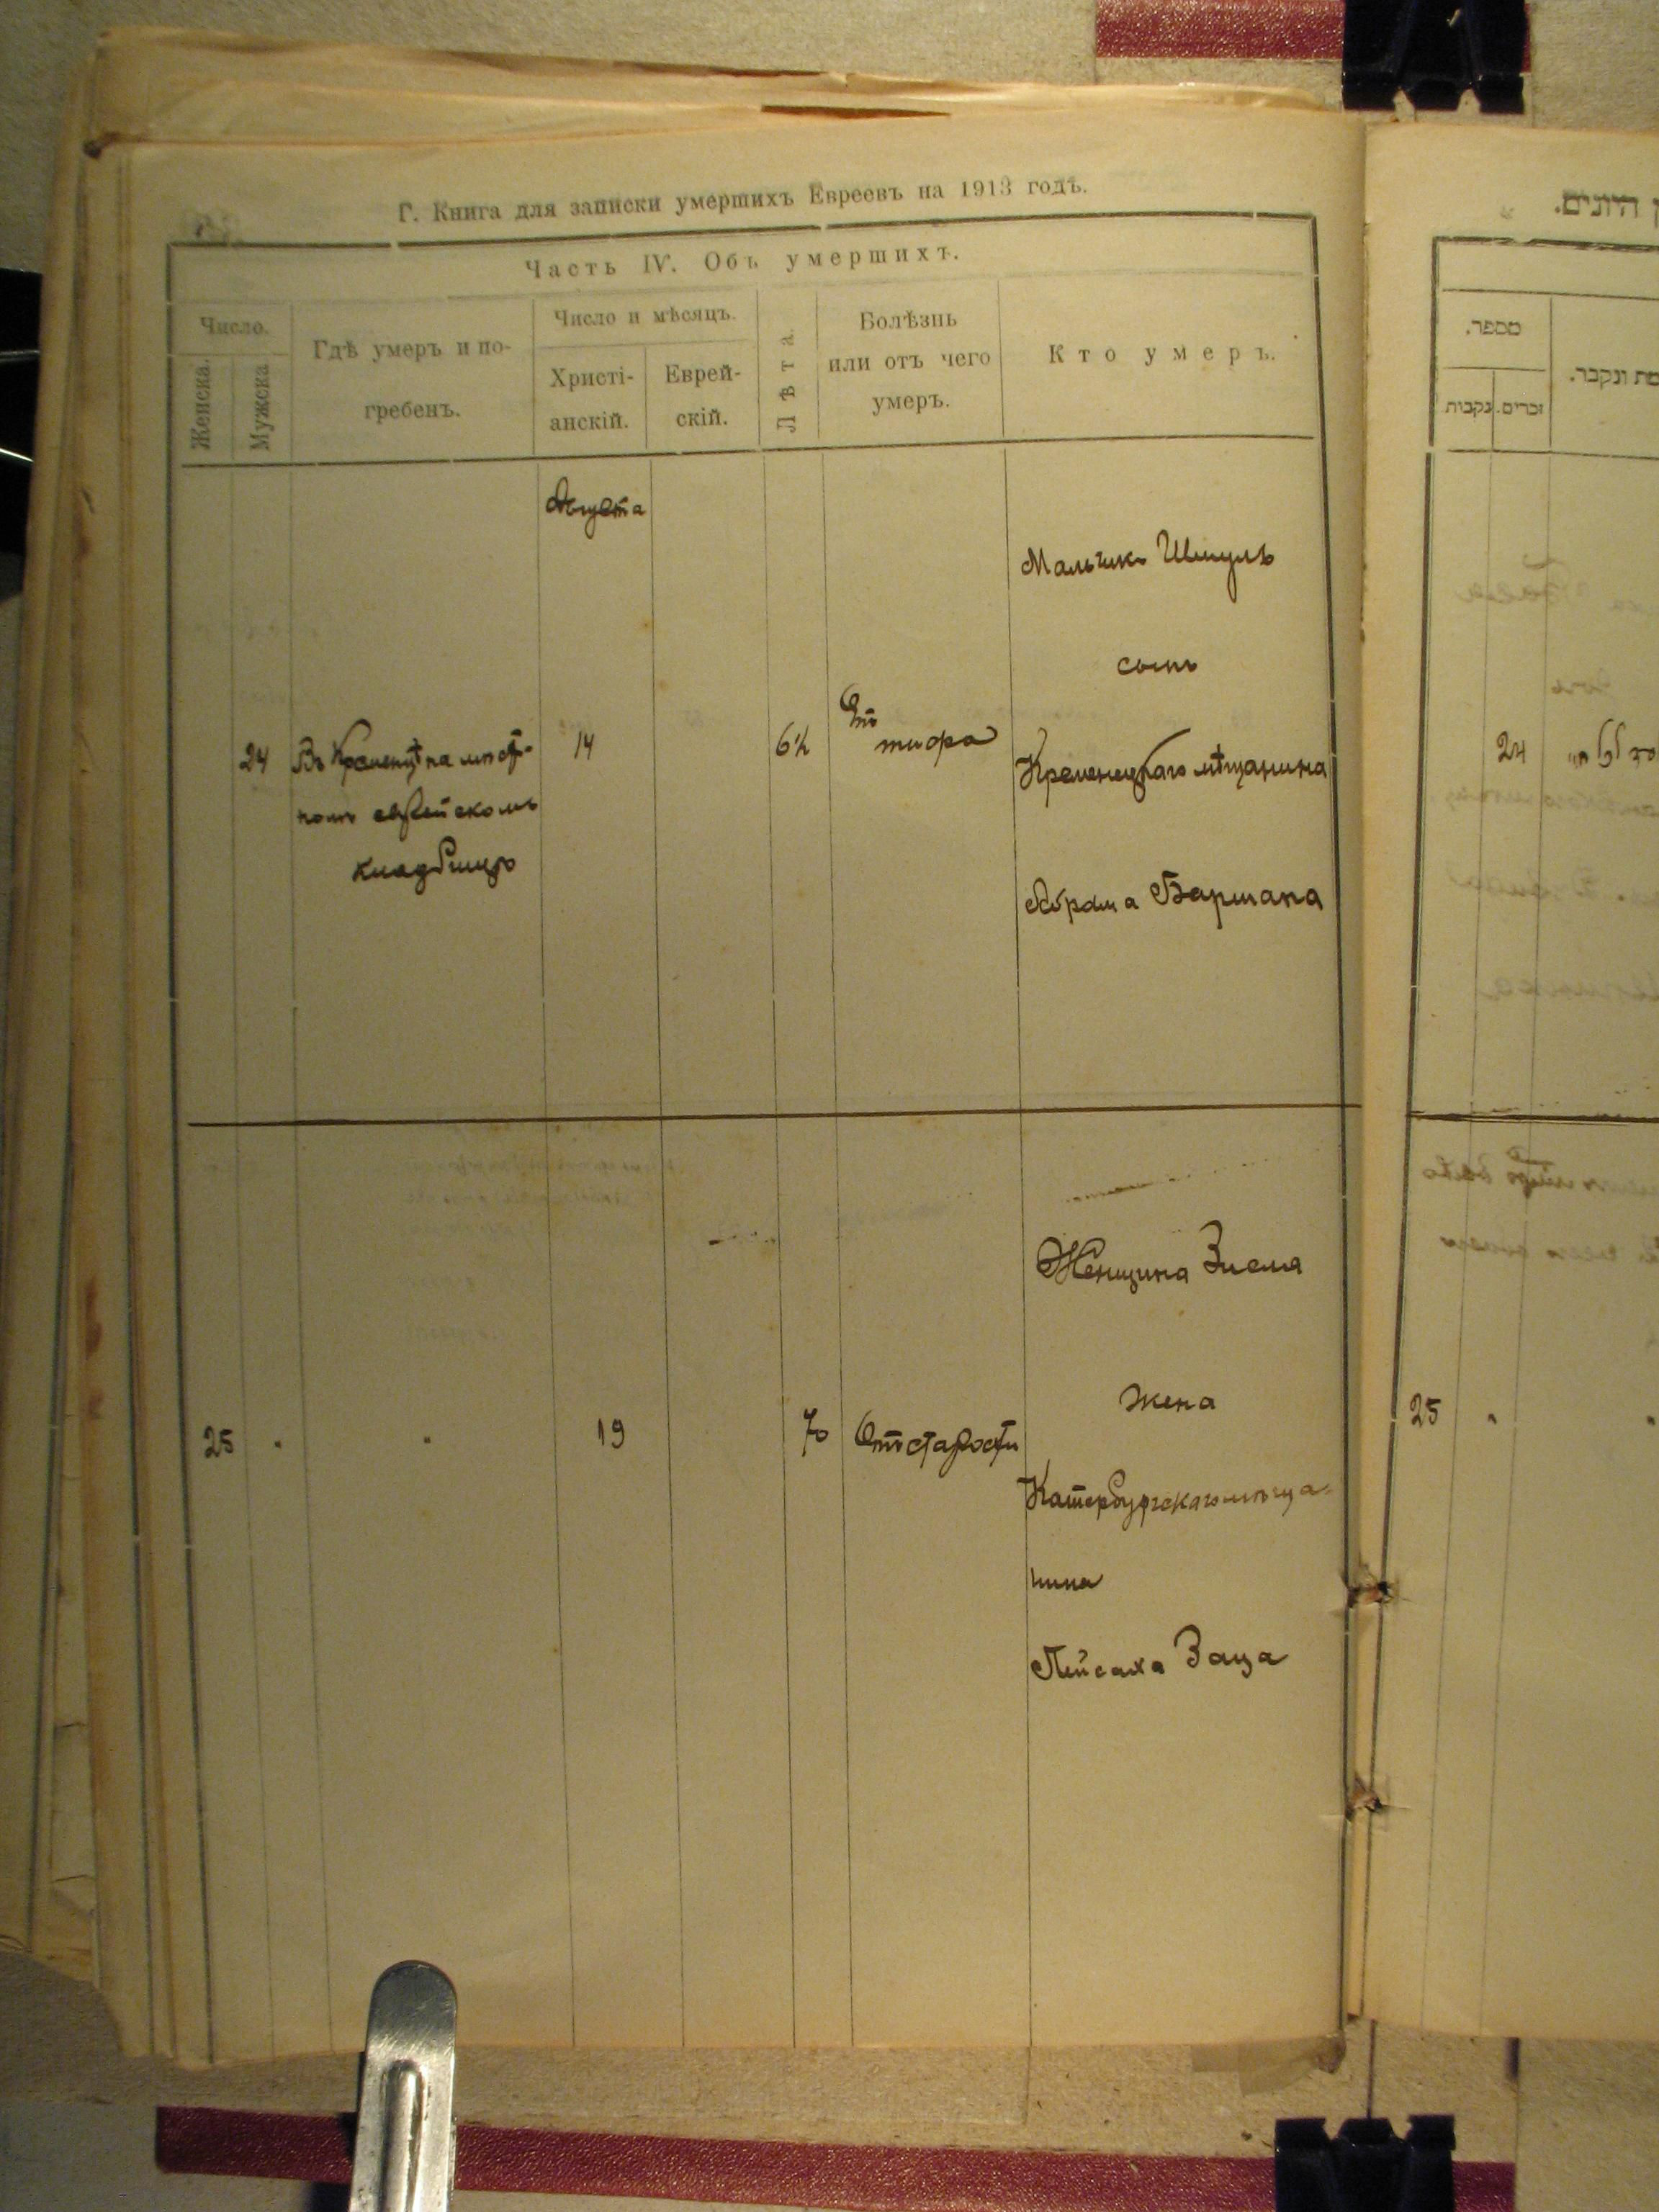 Г. Книга для записки умершихъ Евреевъ на 1913 годъ.
Часть IV. Объ умершихъ.
Число.
Женска.
Мужска
Гдѣ умеръ и по-
гребенъ.
Число и мѣсяцъ.
Христі-
анскій.
Еврей-
скій.
Лѣта.
Болѣзнь
или отъ чего
умеръ.
Кто умеръ.
Августа
Мальчикъ Шмуль
сынъ
24
Въ Кременцѣ на мѣст-
номъ еврейскомъ
кладбищѣ
14
6½
Отъ
тифа
Кременецкаго мѣщанина
Абрама Бармана
Женщина Зисля
жена
25 " "
19
70
Отъ старости
Катербургскаго мѣща-
нина
Пейсаха Заца
מספר.
נקבות
זכרים.
ונקבר.
24
25 "